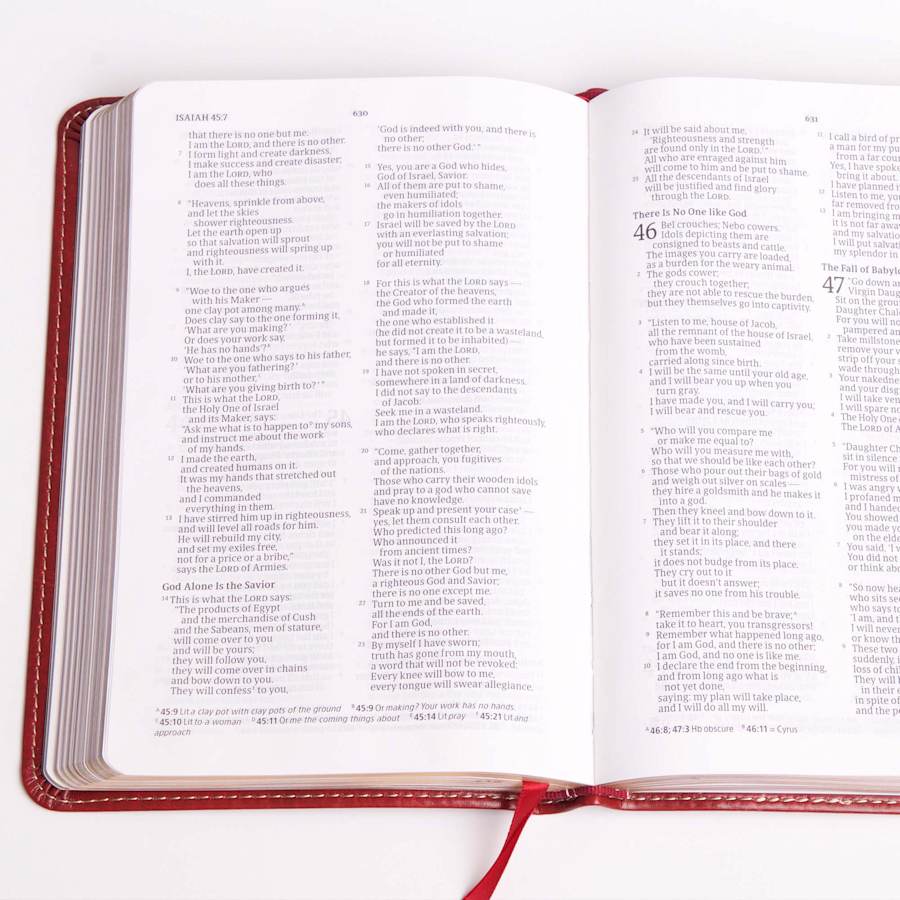 ISAIAH 45:7
630
that there is no one but me.
I am the LORD, and there is no other.
7 I form light and create darkness,
I make success and create disaster;
I am the LORD, who
does all these things.
8 "Heavens, sprinkle from above,
and let the skies
shower righteousness.
Let the earth open up
so that salvation will sprout
and righteousness will spring up
with it.
I, the LORD, have created it.
9 "Woe to the one who argues
with his Maker —
one clay pot among many.ᴬ
Does clay say to the one forming it,
'What are you making?'
Or does your work say,
'He has no hands'?ᴮ
10 Woe to the one who says to his father,
'What are you fathering?'
or to his mother,ᶜ
'What are you giving birth to?' "
11 This is what the LORD,
the Holy One of Israel
and its Maker, says:
"Ask me what is to happen toᴰ my sons,
and instruct me about the work
of my hands.
12 I made the earth,
and created humans on it.
It was my hands that stretched out
the heavens,
and I commanded
everything in them.
13 I have stirred him up in righteousness,
and will level all roads for him.
He will rebuild my city,
and set my exiles free,
not for a price or a bribe,"
says the LORD of Armies.
God Alone Is the Savior
14 This is what the LORD says:
"The products of Egypt
and the merchandise of Cush
and the Sabeans, men of stature,
will come over to you
and will be yours;
they will follow you,
they will come over in chains
and bow down to you.
They will confessᴱ to you,
'God is indeed with you, and there is
no other;
there is no other God.' "
15 Yes, you are a God who hides,
God of Israel, Savior.
16 All of them are put to shame,
even humiliated;
the makers of idols
go in humiliation together.
17 Israel will be saved by the LORD
with an everlasting salvation;
you will not be put to shame
or humiliated
for all eternity.
18 For this is what the LORD says —
the Creator of the heavens,
the God who formed the earth
and made it,
the one who established it
(he did not create it to be a wasteland,
but formed it to be inhabited) —
he says, "I am the LORD,
and there is no other.
19 I have not spoken in secret,
somewhere in a land of darkness.
I did not say to the descendants
of Jacob:
Seek me in a wasteland.
I am the LORD, who speaks righteously,
who declares what is right.
20 "Come, gather together,
and approach, you fugitives
of the nations.
Those who carry their wooden idols
and pray to a god who cannot save
have no knowledge.
21 Speak up and present your caseᶠ —
yes, let them consult each other.
Who predicted this long ago?
Who announced it
from ancient times?
Was it not I, the LORD?
There is no other God but me,
a righteous God and Savior;
there is no one except me.
22 Turn to me and be saved,
all the ends of the earth.
For I am God,
and there is no other.
23 By myself I have sworn;
truth has gone from my mouth,
a word that will not be revoked:
Every knee will bow to me,
every tongue will swear allegiance.
ᴬ45:9 Lit a clay pot with clay pots of the ground ᴮ45:9 Or making? Your work has no hands.
ᶜ45:10 Lit to a woman ᴰ45:11 Or me the coming things about ᴱ45:14 Lit pray ᶠ45:21 Lit and
approach
631
24 It will be said about me,
'Righteousness and strength
are found only in the LORD.' "
All who are enraged against him
will come to him and be put to shame.
25 All the descendants of Israel
will be justified and find glory
through the LORD.
There Is No One like God
46 Bel crouches; Nebo cowers.
Idols depicting them are
consigned to beasts and cattle.
The images you carry are loaded,
as a burden for the weary animal.
2 The gods cower;
they crouch together;
they are not able to rescue the burden,
but they themselves go into captivity.
3 "Listen to me, house of Jacob,
all the remnant of the house of Israel,
who have been sustained
from the womb,
carried along since birth.
4 I will be the same until your old age,
and I will bear you up when you
turn gray.
I have made you, and I will carry you;
I will bear and rescue you.
5 "Who will you compare me
or make me equal to?
Who will you measure me with,
so that we should be like each other?
6 Those who pour out their bags of gold
and weigh out silver on scales —
they hire a goldsmith and he makes it
into a god.
Then they kneel and bow down to it.
7 They lift it to their shoulder
and bear it along;
they set it in its place, and there
it stands;
it does not budge from its place.
They cry out to it
but it doesn't answer;
it saves no one from his trouble.
8 "Remember this and be brave;ᴬ
take it to heart, you transgressors!
9 Remember what happened long ago,
for I am God, and there is no other;
I am God, and no one is like me.
10 I declare the end from the beginning,
and from long ago what is
not yet done,
saying: my plan will take place,
and I will do all my will.
ᴬ46:8; 47:3 Hb obscure ᴮ46:11 = Cyrus
11 I call a bird of pr
a man for my pu
from a far coun
Yes, I have spoke
bring it about.
I have planned i
12 Listen to me, you
far removed from
13 I am bringing m
it is not far away
and my salvation
I will put salvat
my splendor in
The Fall of Babylo
47 "Go down an
Virgin Daug
Sit on the grou
Daughter Chal
For you will no
pampered an
2 Take millstone
remove your v
strip off your s
wade through
3 Your nakedne
and your disg
I will take ven
I will spare no
4 The Holy One
The LORD of A
5 "Daughter C
sit in silence
For you will n
mistress of
6 I was angry w
I profaned m
and I handed
You showed
you made yo
on the elde
7 You said, 'I w
You did not
or think abo
8 "So now hea
who sits sec
who says to
'I am, and th
I will never
or know th
9 These two
suddenly, i
loss of chi
They will h
in their e
in spite of
and the po